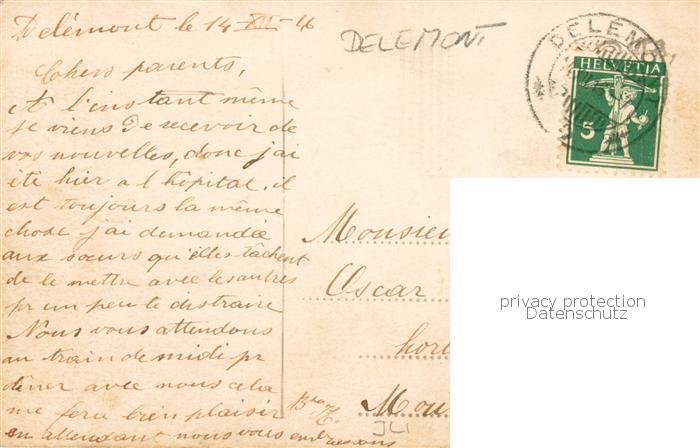 Delémont le 14 XII - 16
DELEMONT
DELEMONT
HELVETIA
5
Chers parents,
A l'instant même
je viens de recevoir de
vos nouvelles, donc j'ai
été hier a l'hôpital. il
est toujours la même
chose j'ai demandée
aux soeurs qu'elles tâchent
de le mettre avec les autres
pr un peu le distraire
Nous vous attendons
au train de midi pr
dîner avec nous cela
me fera bien plaisir
en attendant nous vous embrassons
Monsieur
Oscar
JLI
privacy protection
Datenschutz